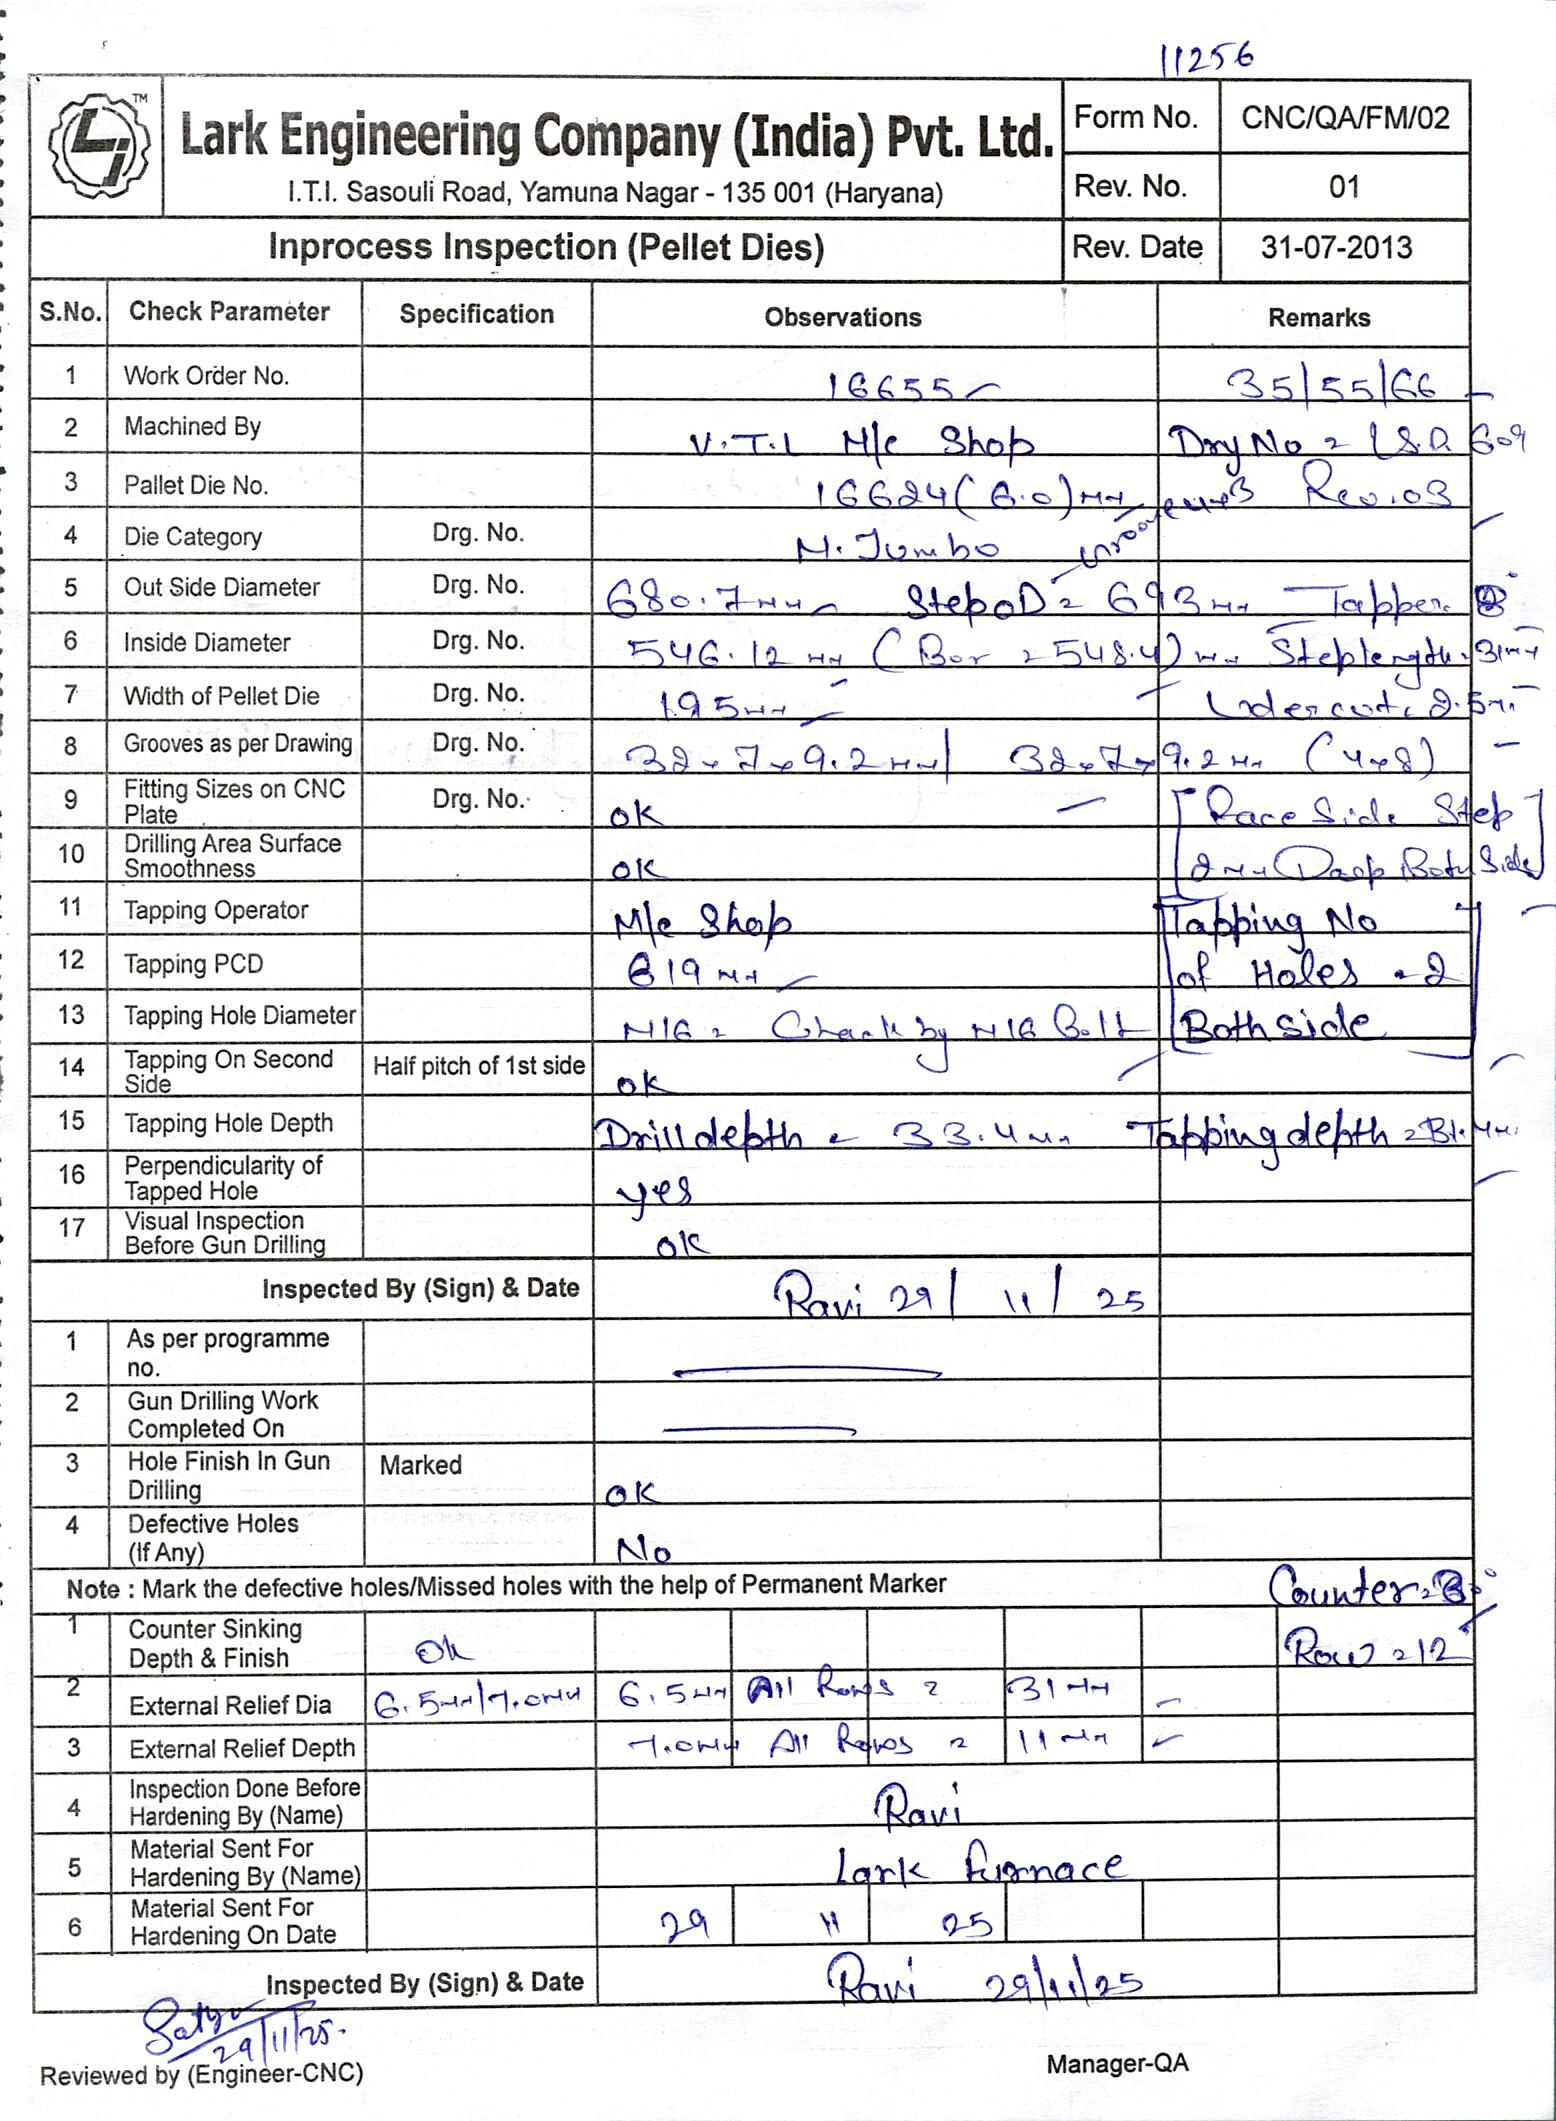 11256
TM
Lark Engineering Company (India) Pvt. Ltd.
I.T.I. Sasouli Road, Yamuna Nagar - 135 001 (Haryana)
Form No. CNC/QA/FM/02
Rev. No. 01
Inprocess Inspection (Pellet Dies) Rev. Date 31-07-2013
S.No. Check Parameter Specification Observations Remarks
1 Work Order No. 16655 35/55/66
2 Machined By V.T.L M/c Shop Drg No =
3 Pallet Die No. 16624 (6.0) mm Rev.03
4 Die Category Drg. No. M. Jumbo
5 Out Side Diameter Drg. No. 680.7mm Step OD = 693mm Tapper
6 Inside Diameter Drg. No. 546.12 mm (Bor = 548.4) mm Step length = 31mm
7 Width of Pellet Die Drg. No. 195mm Undercut = 2.5m
8 Grooves as per Drawing Drg. No. 32x7x9.2mm/ 32x7x9.2mm (4x8)
9 Fitting Sizes on CNC Plate Drg. No. OK [Race Side Step
10 Drilling Area Surface Smoothness OK 2mm Deep Both Side]
11 Tapping Operator M/c Shop [Tapping No
12 Tapping PCD 619mm of Holes = 2
13 Tapping Hole Diameter M16 = Chack by M16 Bolt Both side]
14 Tapping On Second Side Half pitch of 1st side ok
15 Tapping Hole Depth Drill depth = 33.4mm Tapping depth = 31.4mm
16 Perpendicularity of Tapped Hole yes
17 Visual Inspection Before Gun Drilling OK
Inspected By (Sign) & Date Ravi 29/11/25
1 As per programme no.
2 Gun Drilling Work Completed On
3 Hole Finish In Gun Drilling Marked OK
4 Defective Holes (If Any) No
Note : Mark the defective holes/Missed holes with the help of Permanent Marker Counter =
1 Counter Sinking Depth & Finish Ok Row = 12
2 External Relief Dia 6.5mm/7.0mm 6.5mm All Rows = 31mm
3 External Relief Depth 7.0mm All Rows = 11mm
4 Inspection Done Before Hardening By (Name) Ravi
5 Material Sent For Hardening By (Name) Lark Furnace
6 Material Sent For Hardening On Date 29 11 25
Inspected By (Sign) & Date Ravi 29/11/25
29/11/25.
Reviewed by (Engineer-CNC) Manager-QA